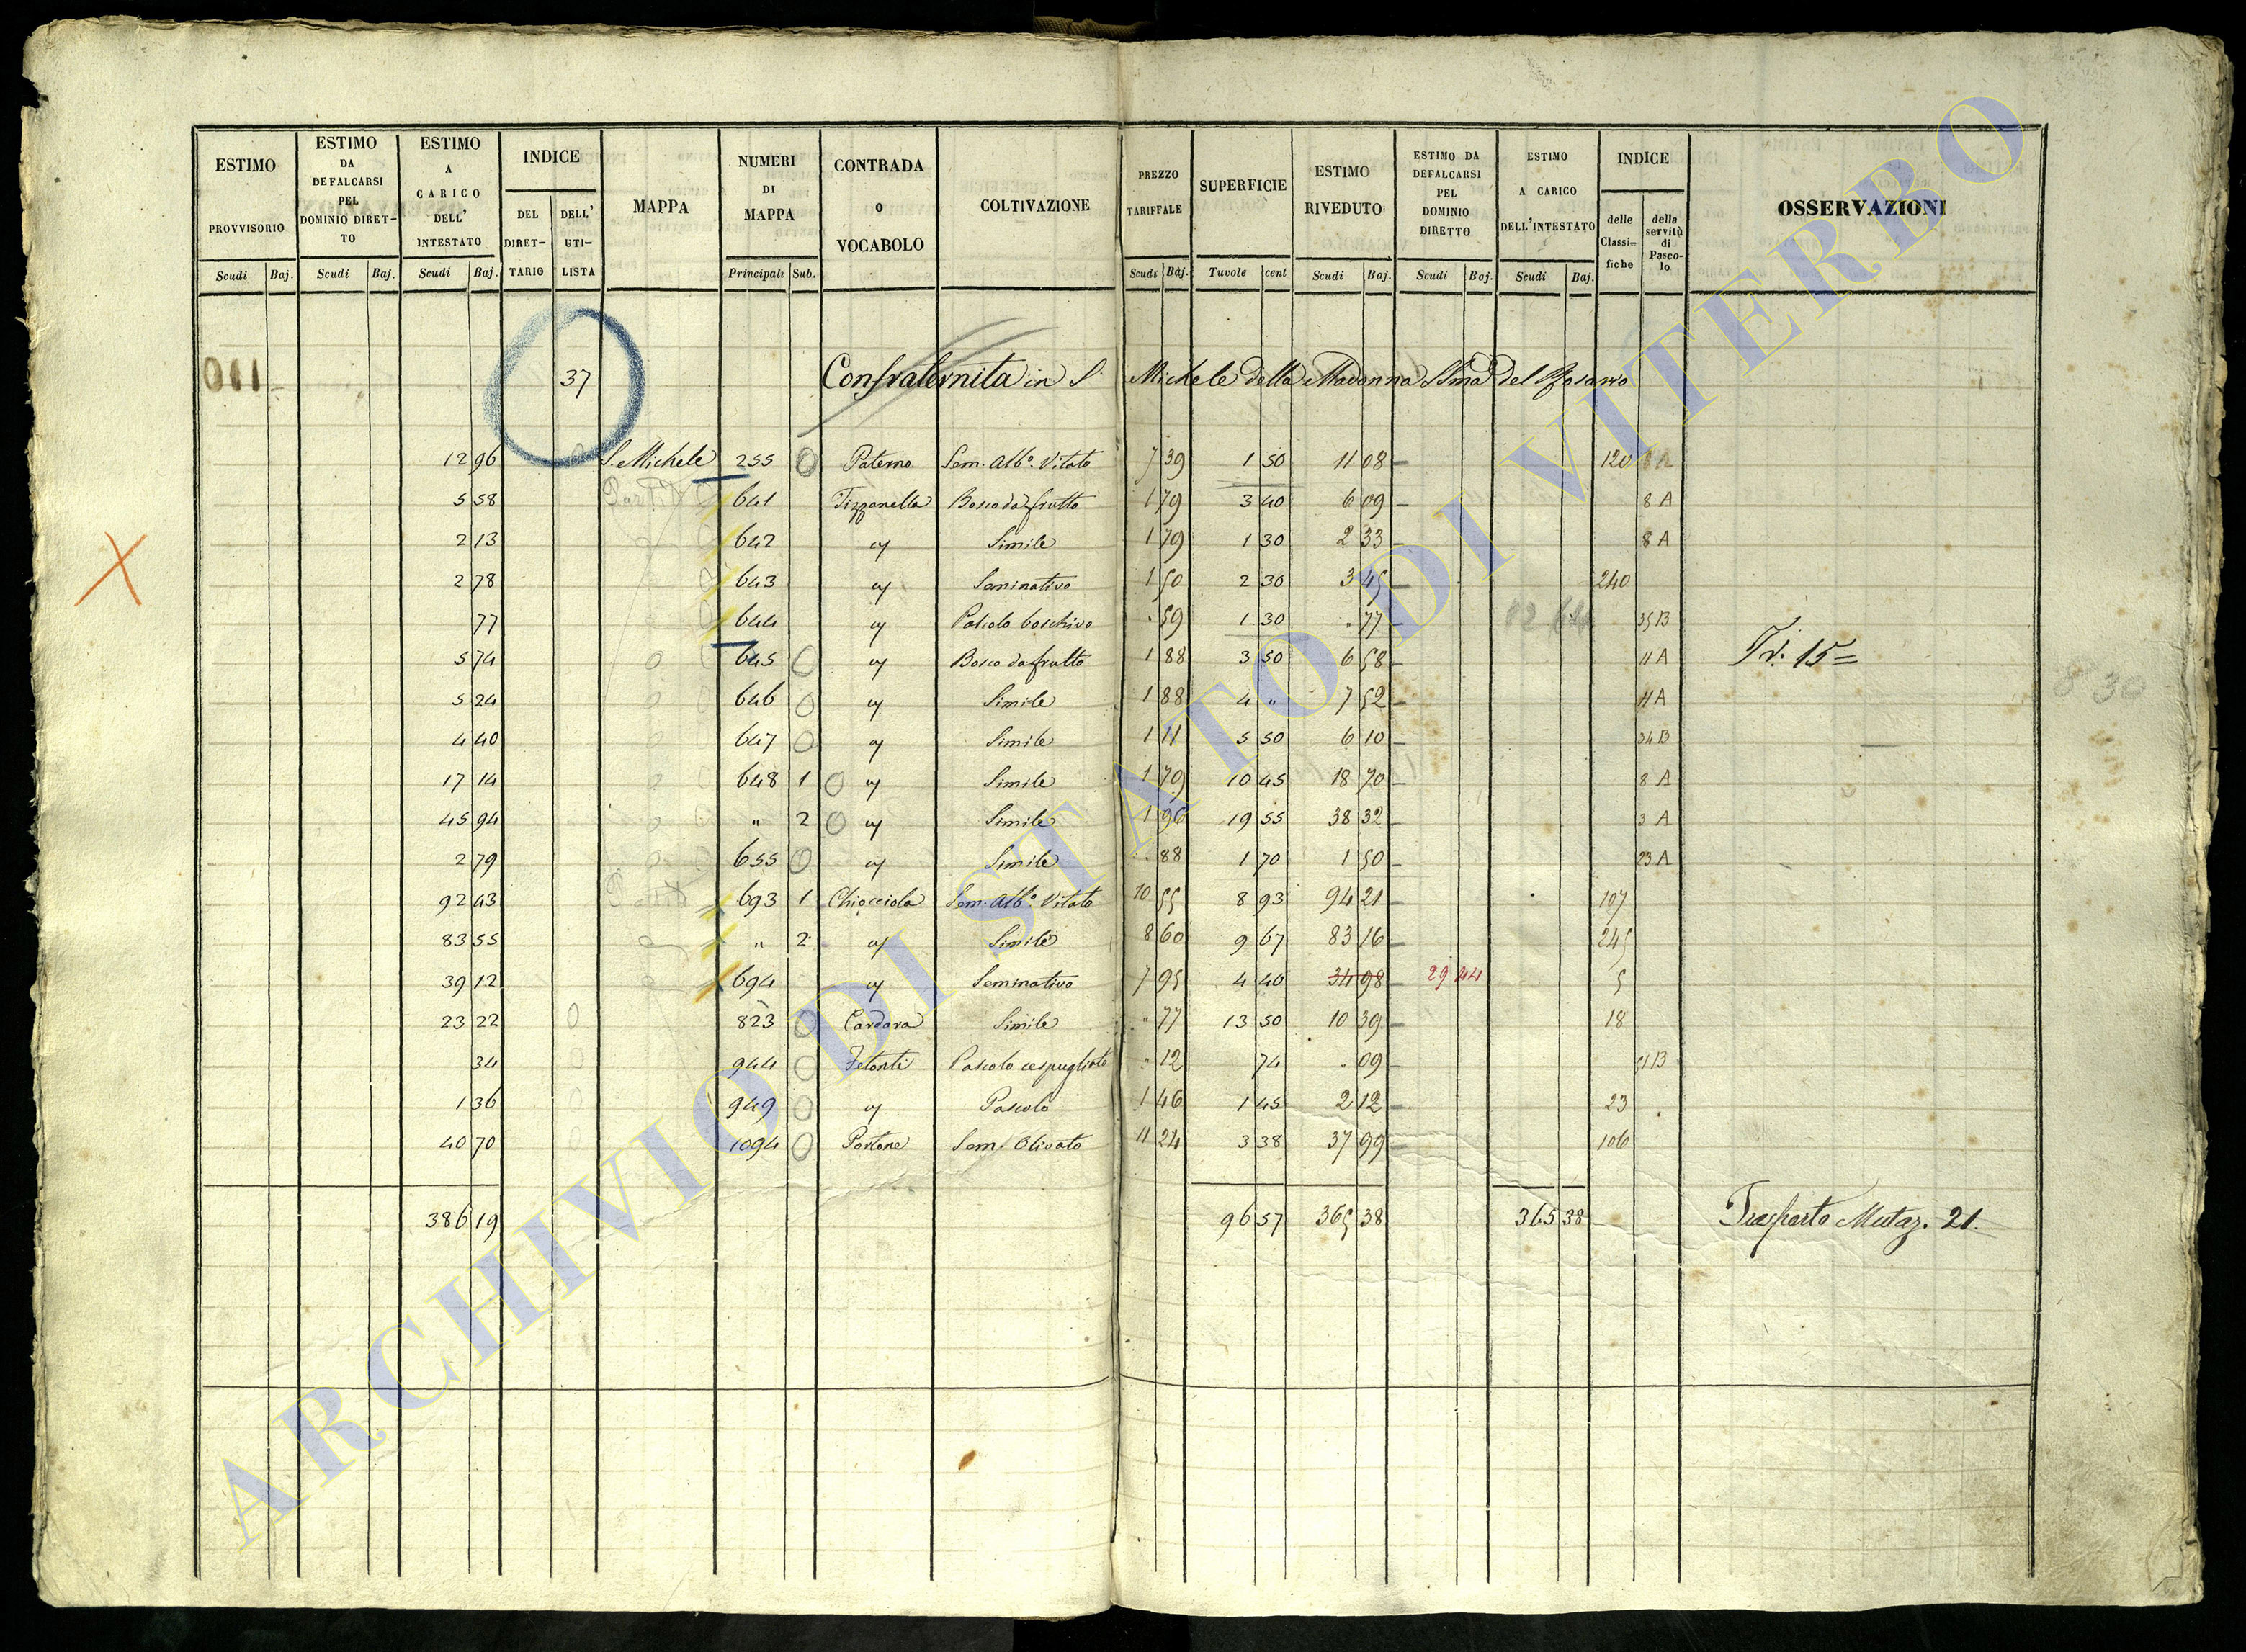 ESTIMO PROVVISORIO Scudi Baj.
ESTIMO DA DEFALCARSI PEL DOMINIO DIRET-TO Scudi Baj.
ESTIMO A CARICO DELL' INTESTATO Scudi Baj.
INDICE DEL DIRET-TARIO DELL' UTI-LISTA
MAPPA
NUMERI DI MAPPA Principali Sub.
CONTRADA O VOCABOLO
COLTIVAZIONE
PREZZO TARIFFALE Scudi Baj.
SUPERFICIE Tavole cent
ESTIMO RIVEDUTO Scudi Baj.
ESTIMO DA DEFALCARSI PEL DOMINIO DIRETTO Scudi Baj.
ESTIMO A CARICO DELL'INTESTATO Scudi Baj.
INDICE delle Classi-fiche della servitù di Pasco-lo
OSSERVAZIONI
011 37 Confraternita in S. Michele della Madonna SSma del Rosario
12 96 S. Michele 255 Paterno Sem. Alb.o Vitato 7 39 1 50 11 08 120
5 58 641 Tizzonella Bosco da frutto 1 79 3 40 6 09 8 A
2 13 642 " Simile 1 79 1 30 2 33 8 A
2 78 643 " Seminativo 1 50 2 30 3 45 240
77 644 " Pascolo boschivo . 59 1 30 . 77 35 B
5 74 645 " Bosco da frutto 1 88 3 50 6 58 11 A Tr. 15=
5 24 646 " Simile 1 88 4 " 7 52 11 A
8 30
4 40 647 " Simile 1 11 5 50 6 10 34 B
17 14 648 1 " Simile 1 79 10 45 18 70 8 A
45 94 " 2 " Simile 1 96 19 55 38 32 3 A
2 79 655 " Simile . 88 1 70 1 50 23 A
92 43 693 1 Chiocciola Sem. Alb.o Vitato 10 55 8 93 94 21 107
83 55 " 2 " Simile 8 60 9 67 83 16 245
39 12 694 " Seminativo 7 95 4 40 34 98 29 44 5
23 22 823 Cardara Simile " 77 13 50 10 39 18
34 944 Pascolo cespugliato " 12 74 . 09 51 B
1 36 949 " Pascolo 1 46 1 45 2 12 23
40 70 1094 Portone Sem. Olivato 11 24 3 38 37 99 106
386 19 96 57 365 38 365 38 Trasporto Mutaz. 21.
ARCHIVIO DI STATO DI VITERBO